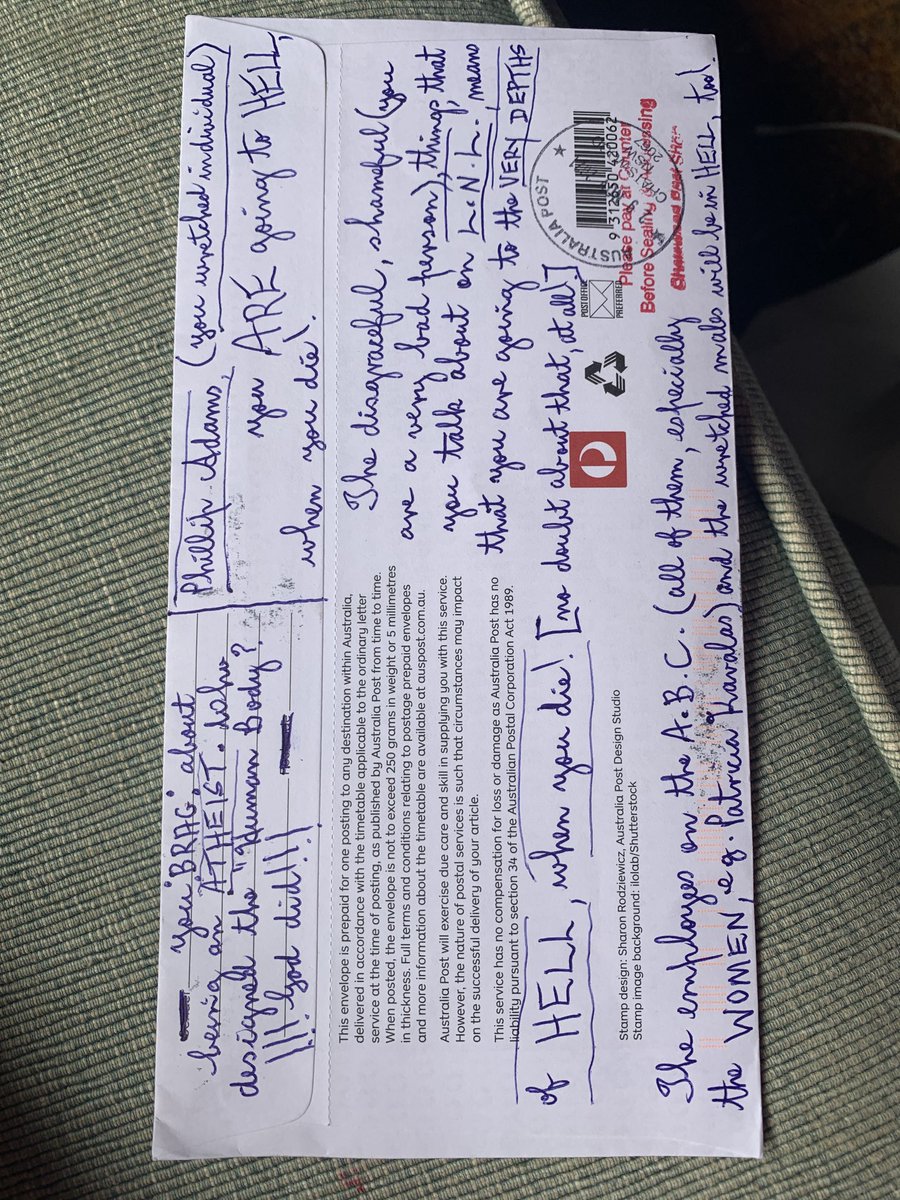 Phillip Adams, (you wretched individual)
you ARE going to HELL,
when you die!
you "BRAG", about
being an "ATHEIST". Who
designed the "Human Body"?
!!! God did!!!
The disgraceful, shameful (you
are a very bad person), things that
you talk about on L.N.L., mean
that you are going to the VERY DEPTHS
of HELL, when you die! [no doubt about that, at all!]
This envelope is prepaid for one posting to any destination within Australia,
delivered in accordance with the timetable applicable to the ordinary letter
service at the time of posting, as published by Australia Post from time to time.
When posted, the envelope is not to exceed 250 grams in weight or 5 millimetres
in thickness. Full terms and conditions relating to postage prepaid envelopes
and more information about the timetable are available at auspost.com.au.
Australia Post will exercise due care and skill in supplying you with this service.
However, the nature of postal services is such that circumstances may impact
on the successful delivery of your article.
This service has no compensation for loss or damage as Australia Post has no
liability pursuant to section 34 of the Australian Postal Corporation Act 1989.
Stamp design: Sharon Rodziewicz, Australia Post Design Studio
Stamp image background: ilolab/Shutterstock
POST OFFICE
PREFERRED
AUSTRALIA POST
9 312650 420062
Please pay at Counter
Before Sealing or Processing
The employees on the A.B.C. (all of them, especially
the WOMEN, e.g. Patricia Karvalas) and the wretched males will be in HELL, too!